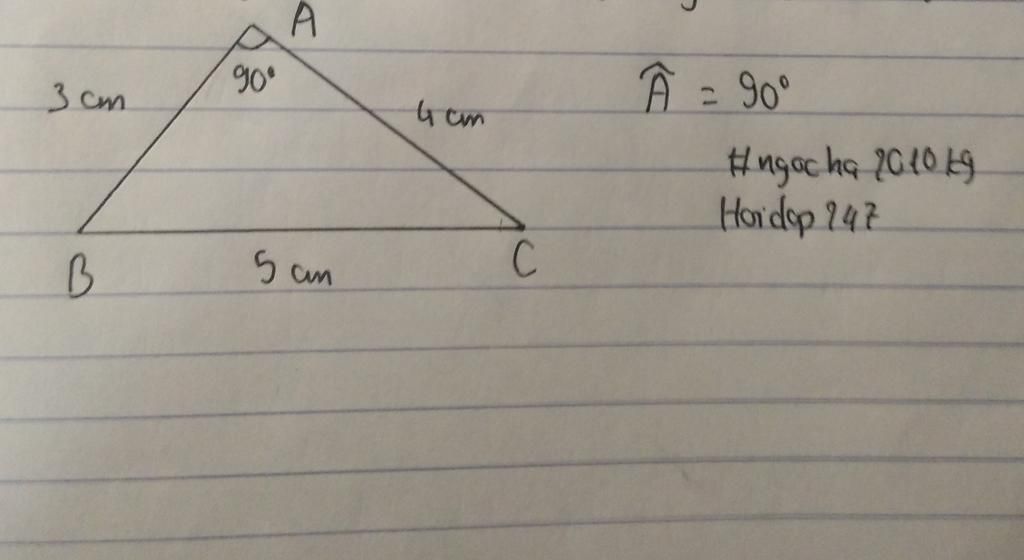 A
90°
3 cm
4 cm
Â = 90°
#ngocha 2010kg
Hoidap 247
B
5 cm
C